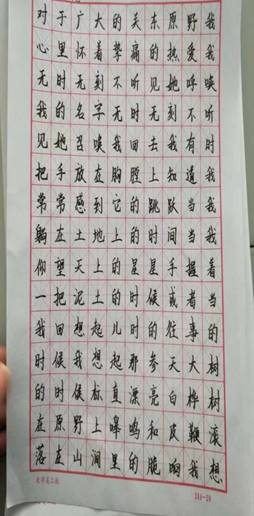 对于广大的关东原野我
心里怀着挚痛的热爱我
无时无刻不听见她呼唤
我的名字无时无刻不听
见她召唤我回去我有时
把手放在胸膛上知道我
常常感到它的跳跃当我
躺在土地上的时间当我
仰望天上的星星手握着
一把泥土的时候或者当
我回想起儿时的往事的
时候我想起那参天大树
的时候标直漂亮白桦树
在原野上嗥鸣和皮鞭滚
落在山涧里的脆响我想